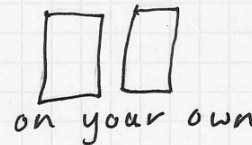 on your own